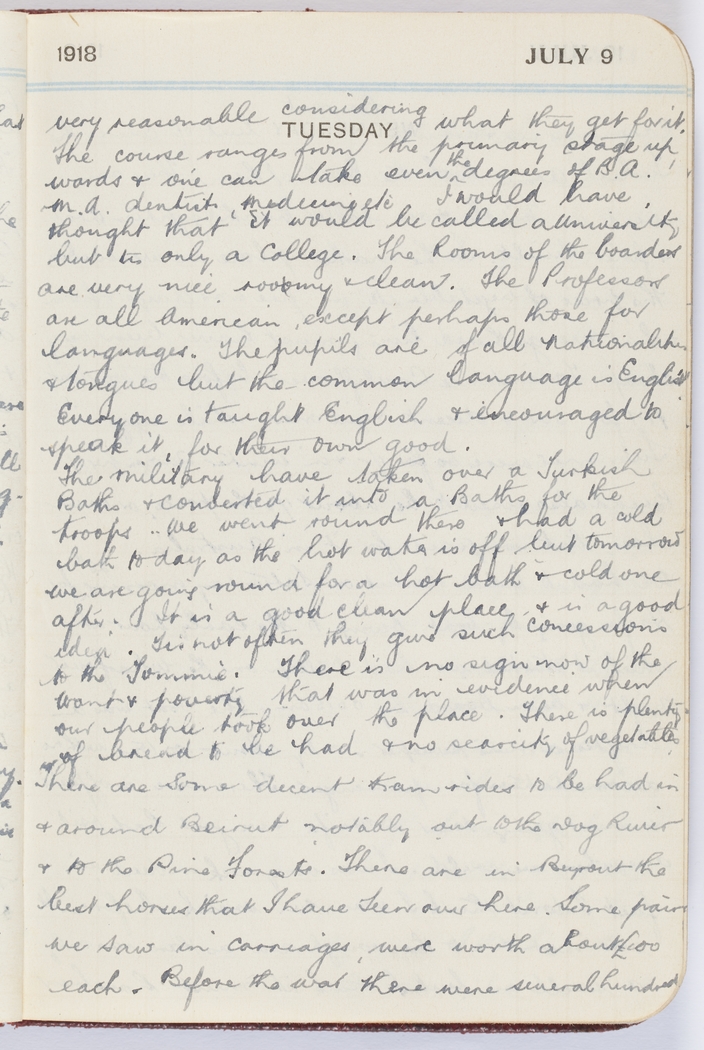 1918 JULY 9
very reasonable considering what they get for it.
TUESDAY
The course ranges from the primary stage up
wards & one can take even the degrees of B.A.
M.A. dentist, medicine etc I would have
thought that it would be called a University
but tis only a College. The Rooms of the boarders
are very nice roomy & clean. The Professors
are all American, except perhaps those for
languages. The pupils are of all nationalities
& tongues but the common language is English
Everyone is taught English & encouraged to
speak it, for their own good.
The military have taken over a Turkish
Baths & converted it into a Baths for the
troops. We went round there & had a cold
bath today as the hot water is off but tomorrow
we are going round for a hot bath & cold one
after. It is a good clean place, & is a good
idea. Tis not often they give such concessions
to the Tommie. There is no sign now of the
want & poverty that was in evidence when
our people took over the place. There is plenty
of bread to be had & no scarcity of vegetables
There are some decent tram rides to be had in
& around Beirut notably out to the Dog River
& to the Pine Forests. There are in Beyrout the
best horses that I have seen over here. Some pairs
we saw in carriages, were worth about £100
each. Before the war there were several hundred